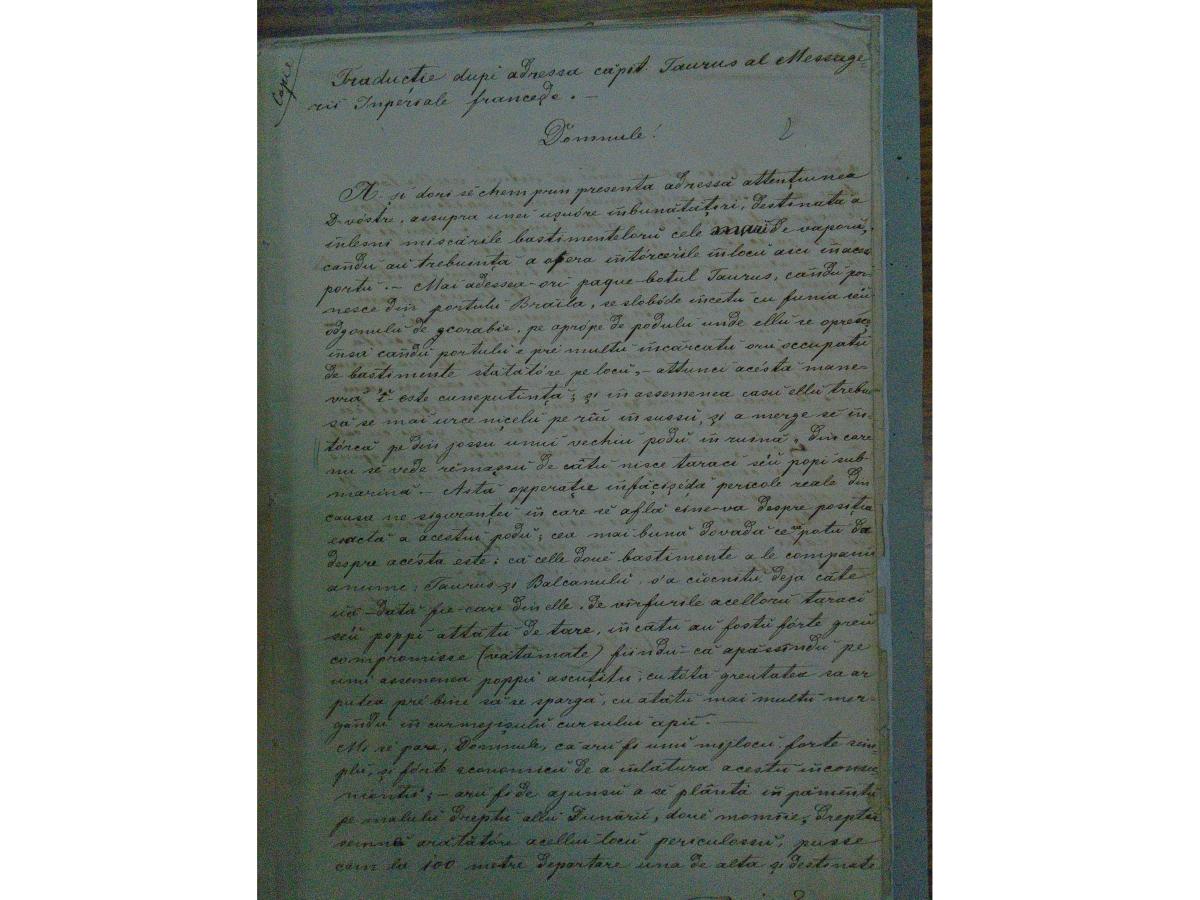 Copie
Traducție dupi adressa căpit. Taurus al Message
rii Inperiale francede. —
Domnule!
2
A și dori sĕ chem prin presenta adressă attențiunea
D-vóstre, assupra unei ușuóre înbunătățiri, destinată a
înlesni miscările bastimentelorŭ cele mari de vaporŭ,
cândŭ au trebuința a opera întórcerile înlocŭ aici în acest
portŭ. — Mai adessea-ori paque-botul Taurus, cândŭ por-
nesce din portulŭ Braila, se slobóde încetŭ cu funia sĕu
odgonulŭ de corabie, pe aprópe de podulŭ unde ellŭ se opresce,
însă cândŭ portulŭ e prĕ multŭ încărcatŭ orĭ occupatŭ
de bastimente stătătóre pe locŭ, — attuncĭ acéstă mane-
vră 'ĭ este cuneputință; și în assemenea casŭ ellŭ trebue
să se mai urce nițelŭ pe rîŭ în sussŭ, și a merge se în-
tórcă pe din jossu unui vechiu podŭ în ruină, din care
nu sĕ vede rĕmassŭ de câtŭ nisce taraci sĕŭ popi sub-
marină. — Astă opperație înfăcișédă pericole reale din
causa ne siguranței în care sĕ află cine-va despre posiția
esactă a acestui podŭ; cea mai bună dovadă ce vĕ potŭ da
despre acésta este: că celle douĕ bastimente a le companiĭ
anume: Taurus și Balcanulŭ s'a ciocnitŭ deja câte
uă-dată fie-care din elle, de vîrfurile acellorŭ taraci
sĕŭ poppi attâtŭ de tare, încâtŭ au fostŭ fórte greŭ
compromisse (vătămate) fiindŭ-că apăssîndŭ pe
unŭ assemenea poppŭ ascuțitŭ, cu tótă greutatea sa ar
putea prĕ bine să se spargă, cu atâtŭ mai multŭ mer-
gândŭ în curmezișulŭ cursului apiĭ. —
Mi sĕ pare, Domnule, că arŭ fi unŭ mijlocŭ forte sim-
plu, și fórte economicŭ de a înlătura acestŭ inconve-
nientŭ; — arŭ fi de ajunsŭ a se plântă în pămîntŭ
pe malulŭ dreptŭ allŭ Dunăriĭ, douĕ momîie, dreptŭ
semne arătătóre acellui locŭ periculossŭ, pusse
cam la 100 metre depărtare una de alta și destinate